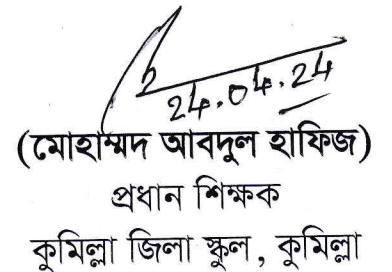 24.04.24
(মোহাম্মদ আবদুল হাফিজ)
প্রধান শিক্ষক
কুমিল্লা জিলা স্কুল, কুমিল্লা